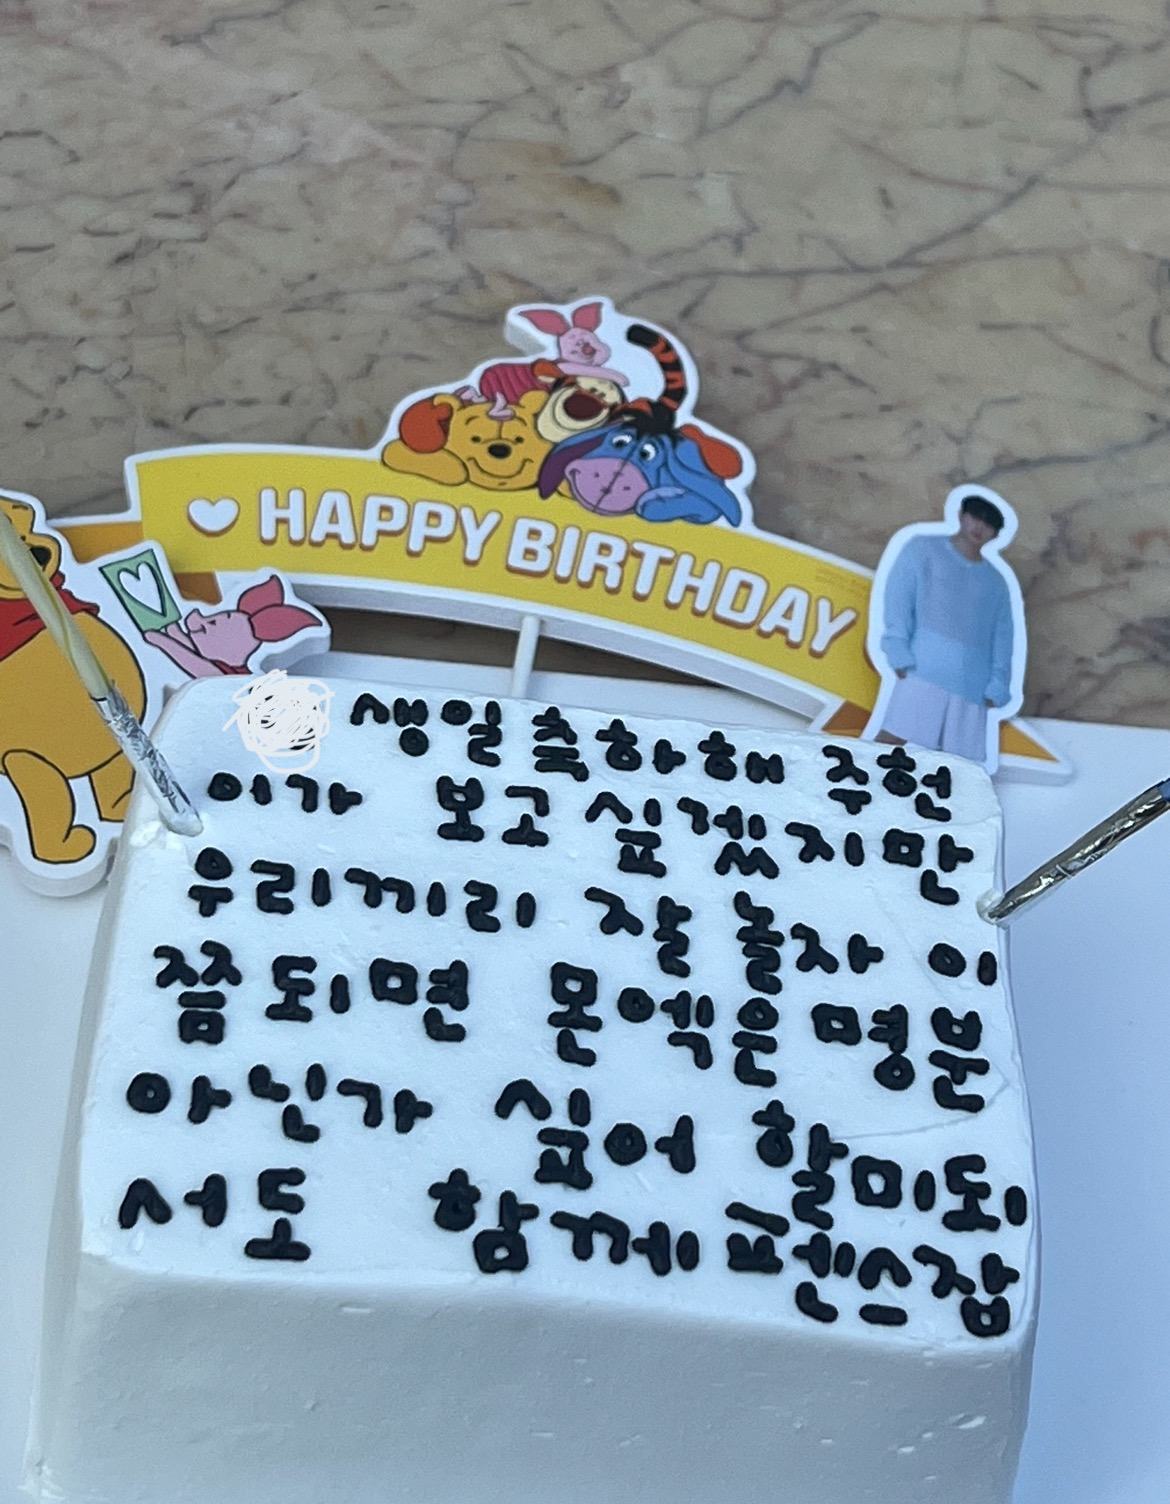 HAPPY BIRTHDAY
생일축하해 주현
이가 보고 싶겠지만
우리끼리 잘 놀자 이
쯤되면 몬엑은 명분
아닌가 싶어 할미되
서도 함께 펜스잡